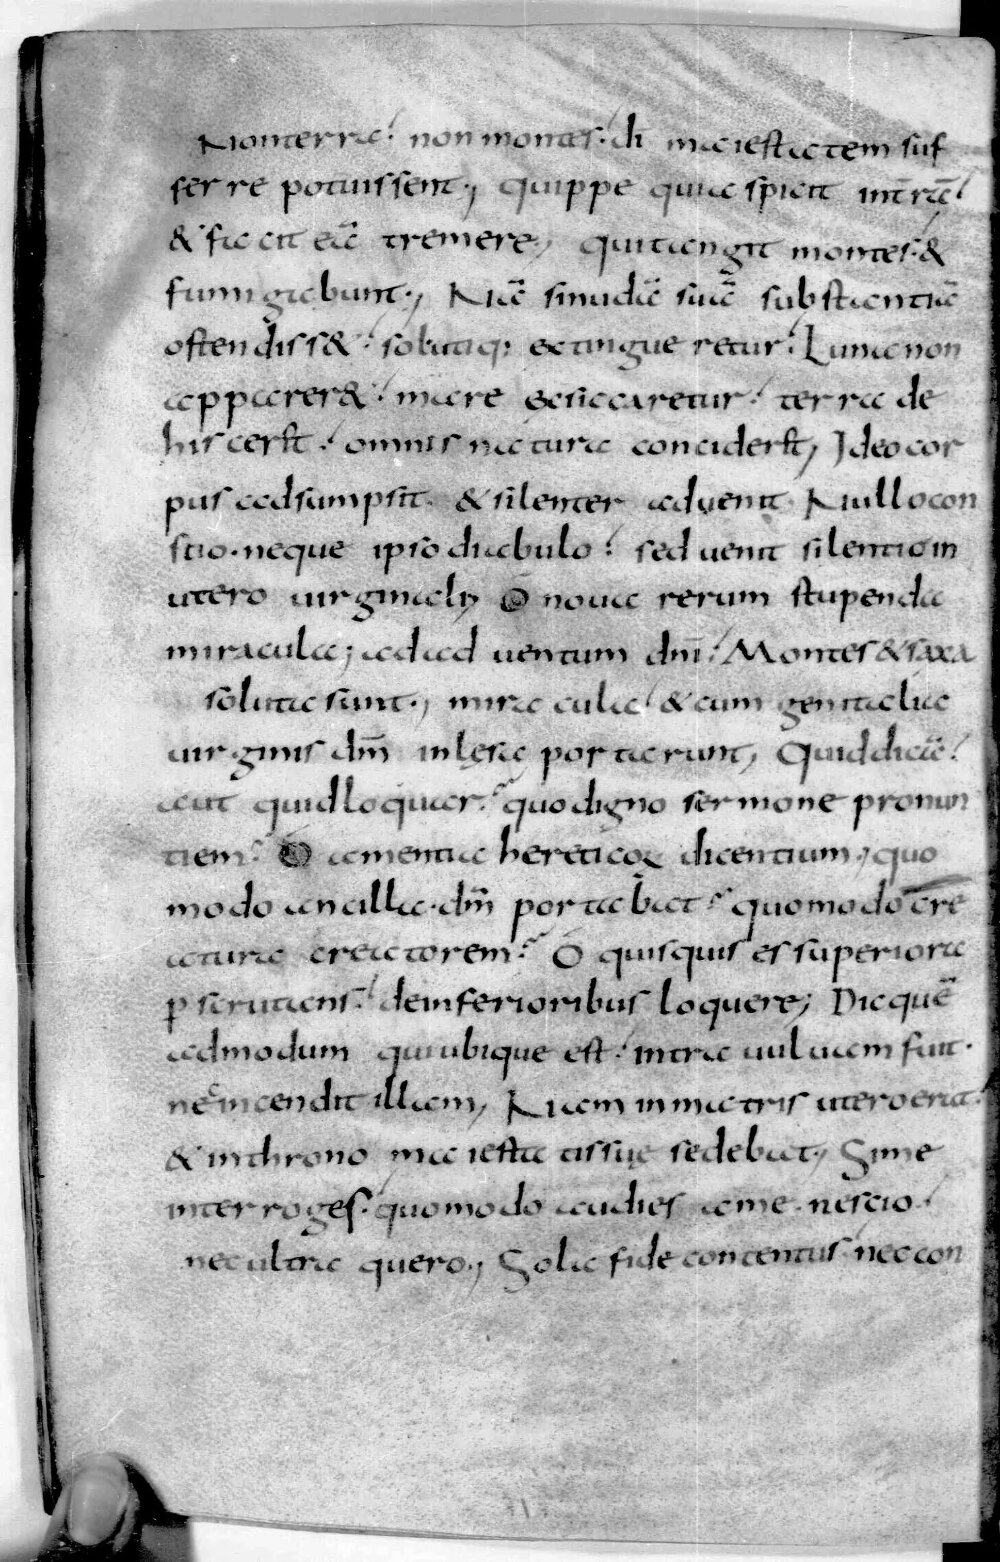 Nonterra. non montes. dī maiestatem suf
ferre potuissent; quippe qui aspicit intrā
& facit eā tremere; qui tangit montes. &
fumigabunt; Nā si nudā suā substantiā
ostendiss&. solutaq; extingueretur. Luna non
apparer&. mare exsiccaretur. terra de
hiscer&. omnis natura concider&; Ideo cor
pus adsumpsit. & silenter aduenit. Nullo con
scio. neque ipso diabulo. sed uenit silentio in
utero uirginali; O noua rerum stupenda
miracula; ad aduentum dn̄i. Montes & saxa
soluta sunt; miracula. & cum genitalia
uirginis dn̄m inlęsa portarunt; Quid dicā.
aut quid loquar. quo digno sermone pronun
tiem. O amentia hereticoꝝ dicentium; quo
modo ancilla. dn̄m portabat. quomodo cre
atura creatorem. O quisquis es superiora
ꝑscrutans. de inferioribus loquere; Dic quē
admodum qui ubique est. intra uuluam fuit.
nec incendit illam; Nam in matris utero erat.
& in throno maiestatis suę sedebat; Si me
interroges. quomodo audies a me. nescio.
nec ultra quero; Sola fide contentus. nec con